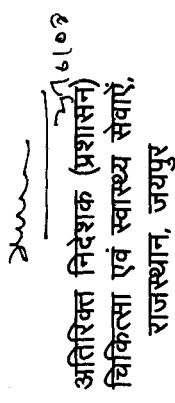 अतिरिक्त निदेशक (प्रशासन)
चिकित्सा एवं स्वास्थ्य सेवाऐं,
राजस्थान, जयपुर